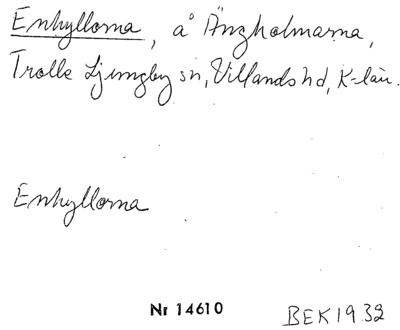 Enhyllorna, å Ängholmarna,
Trolle Ljungby sn, Villands hd, K-län.
Enhyllorna
Nr 14610
BEK 1932